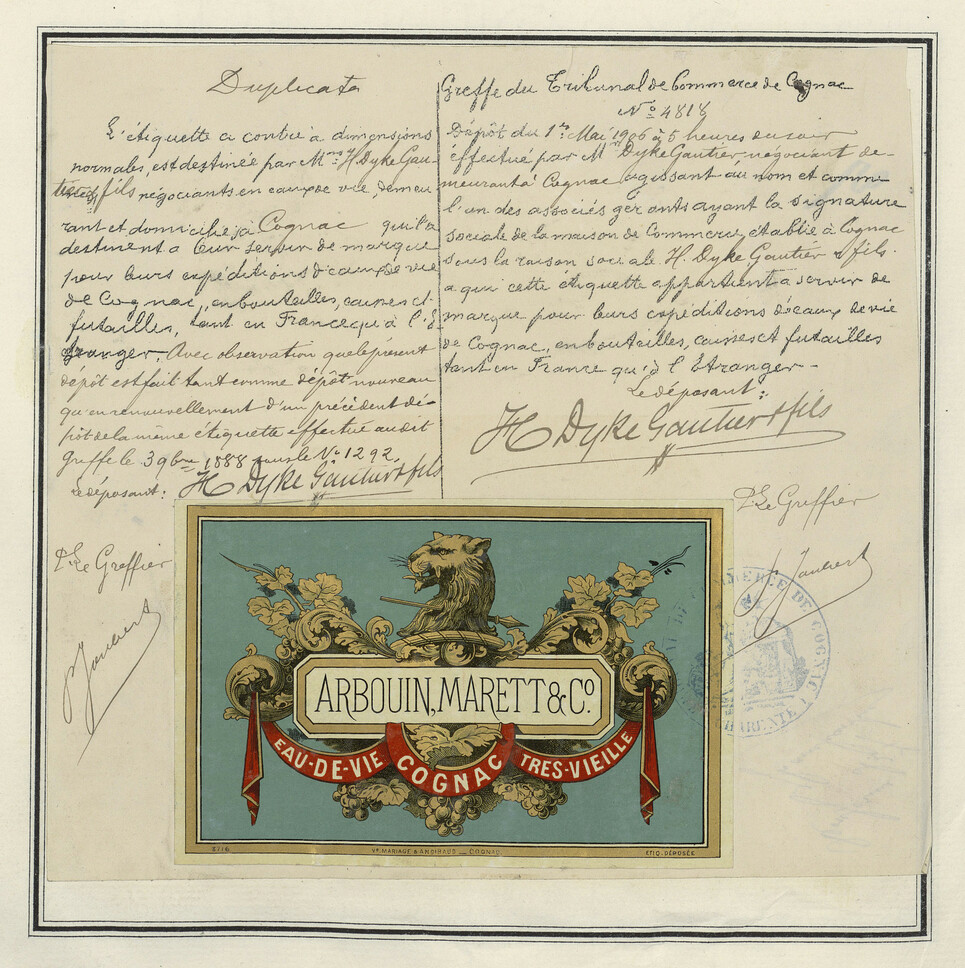 Duplicata
L'étiquette ci contre à dimensions
normales, est destinée par Mrs H Dyke Gau-
tier & fils négociants en eaux de vie, demeu
rant et domiciliés à Cognac qui la
destinent à leur servir de marque
pour leurs expéditions d'eaux de vie
de Cognac, en bouteilles, caisses et
futailles, tant en France qu'à l'é
tranger, Avec observation que le présent
dépôt est fait tant comme dépôt nouveau
qu'en renouvellement d'un précédent dé-
pôt de la même étiquette effectué au dit
Greffe le 3 9bre 1888 sous le No 1292.
Le déposant: H Dyke Gautier & fils
Pr Le Greffier
Greffe du Tribunal de Commerce de Cognac
No 4818
Dépôt du 1er Mai 1906 à 5 heures du soir
éffectué par Mr Dyke Gautier, négociant de-
meurant à Cognac agissant au nom et comme
l'un des associés gérants ayant la signature
sociale de la maison de Commerce, établie à Cognac
sous la raison sociale H. Dyke Gautier & fils.
a qui cette étiquette appartient à servir de
marque pour leurs expéditions d'eaux de vie
de Cognac, en bouteilles, caisses et futailles
tant en France qu'à l'Etranger-
Le déposant:
H Dyke Gautier & fils
Pr Le Greffier
ARBOUIN, MARETT & Co.
EAU-DE-VIE COGNAC TRES-VIEILLE
Ve MARIAGE & ANDIBAUD _ COGNAC.
ETIQ. DÉPOSÉE
COMMERCE DE COGNAC
CHARENTE